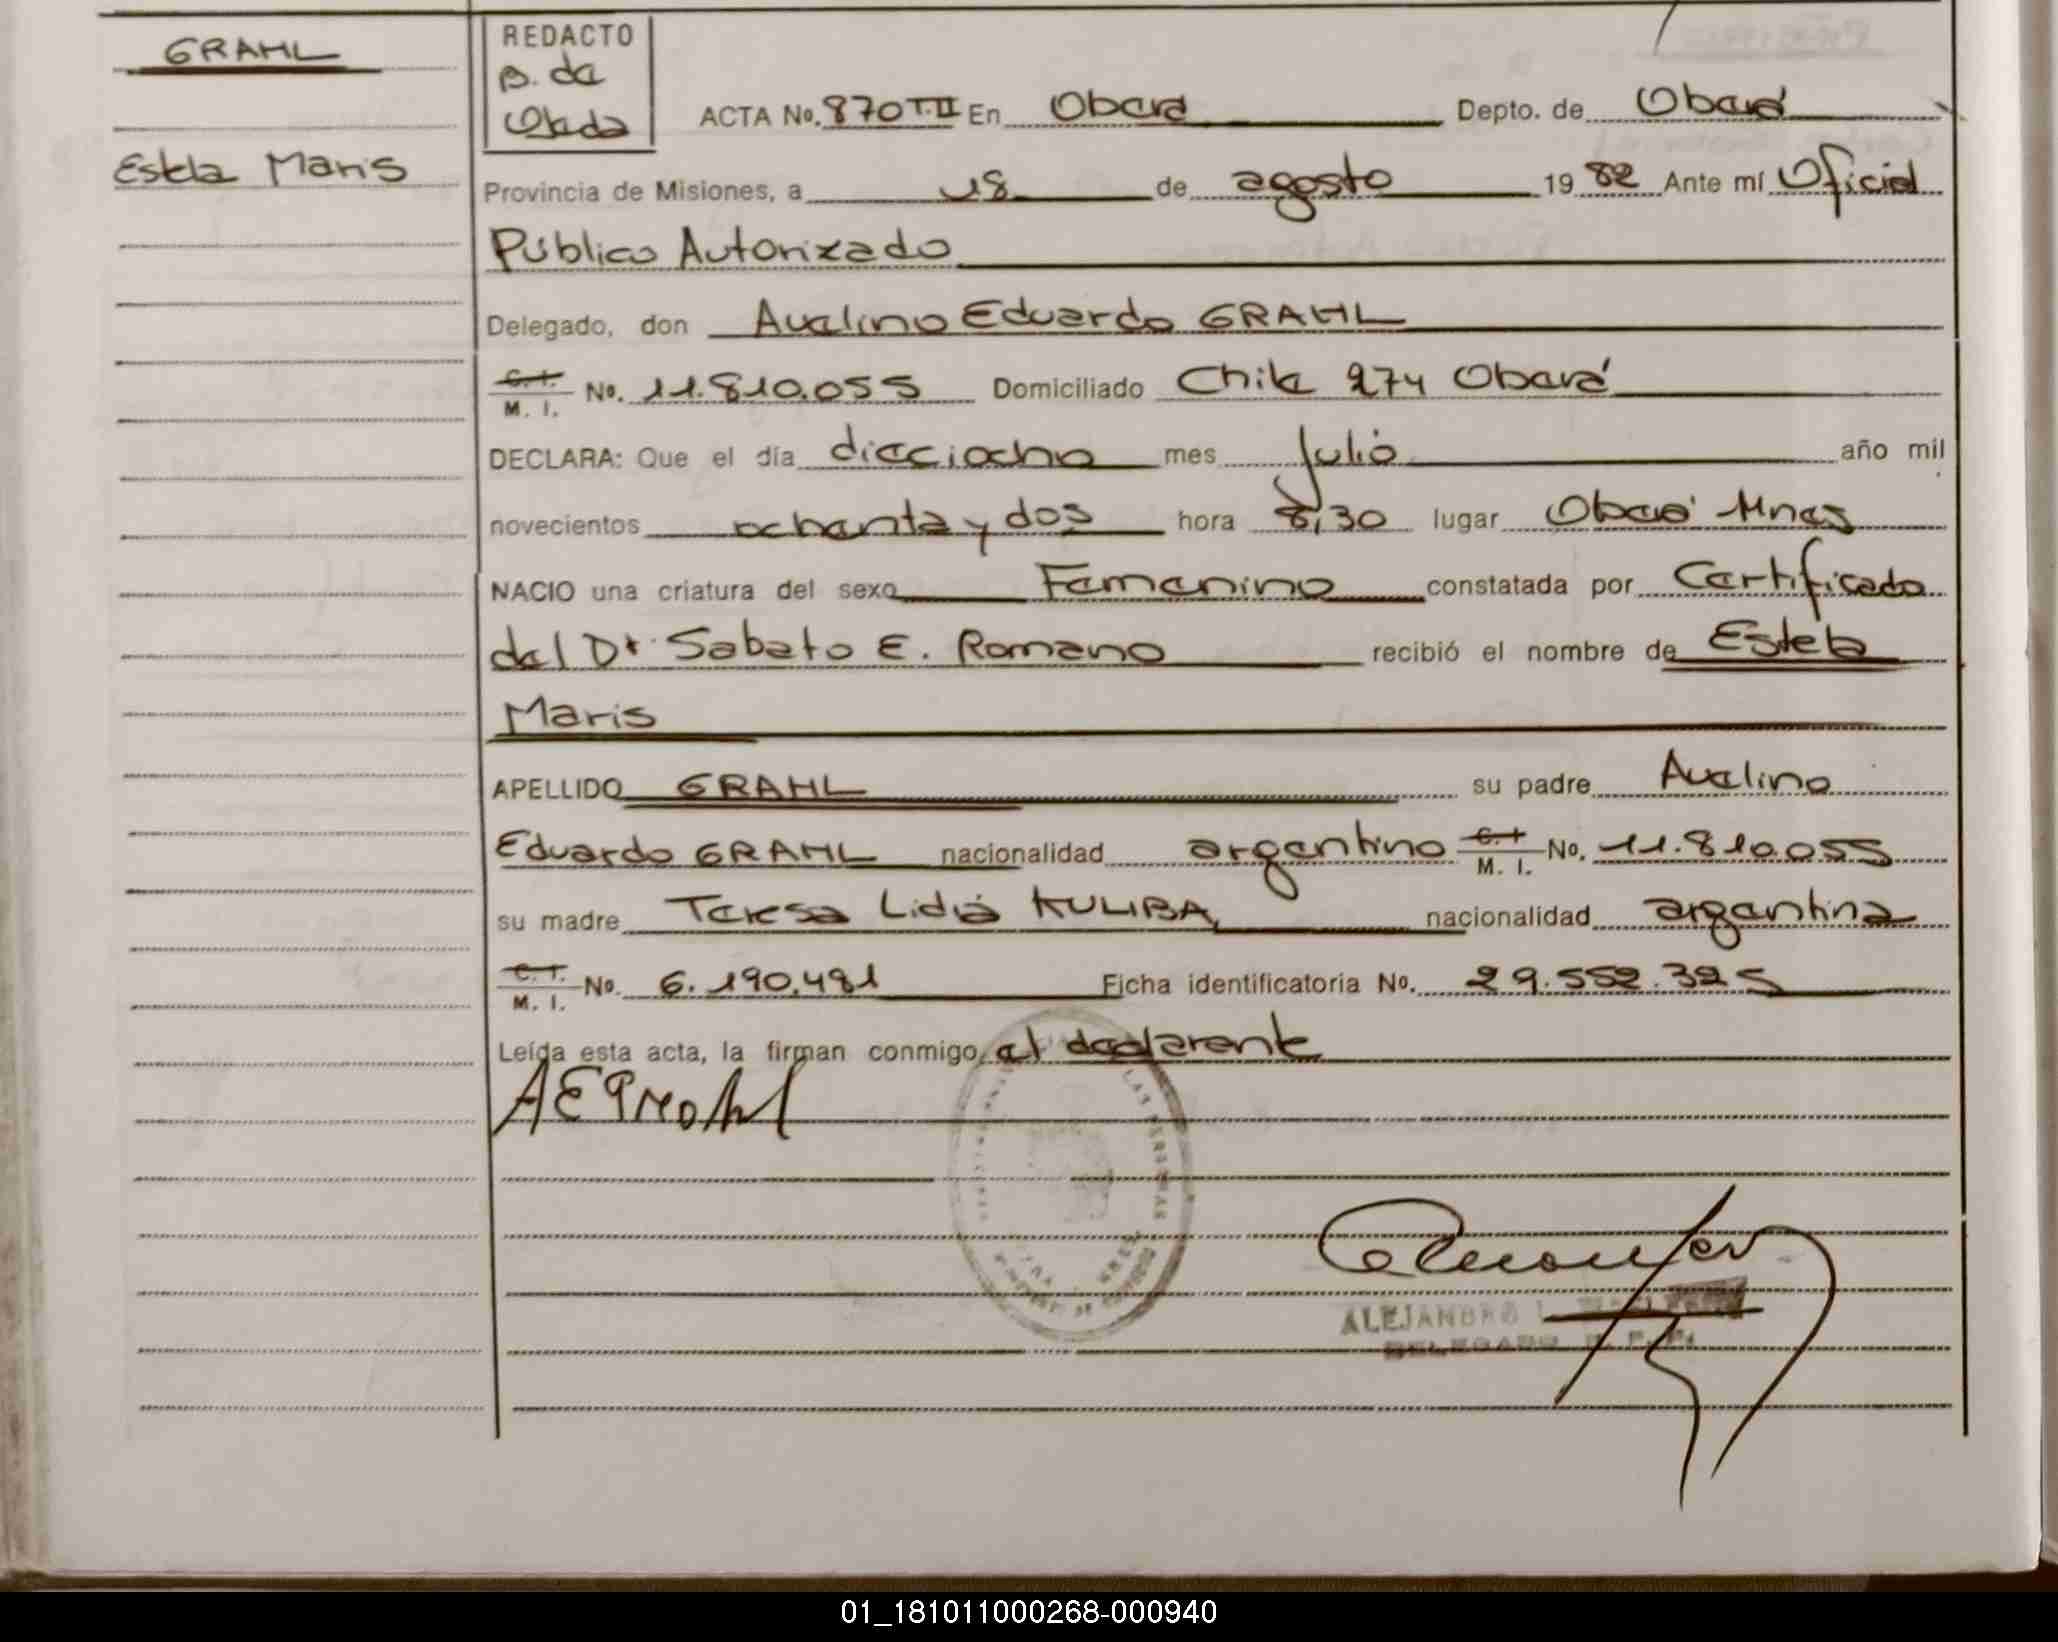 GRAHL
Estela Maris
REDACTO
B. de
Olada
ACTA No. 870 T.II En Oberá Depto. de Oberá
Provincia de Misiones, a 18 de agosto 1982 Ante mí Oficial
Público Autorizado
Delegado, don Avelino Eduardo GRAHL
C. I. M. I. No. 11.810.055 Domiciliado Chile 274 Oberá
DECLARA: Que el día dieciocho mes Julio año mil
novecientos ochenta y dos hora 8,30 lugar Oberá Mnes
NACIO una criatura del sexo Femenino constatada por Certificado
del Dr. Sabato E. Romano recibió el nombre de Estela
Maris
APELLIDO GRAHL su padre Avelino
Eduardo GRAHL nacionalidad argentino C. I. M. I. No. 11.810.055
su madre Teresa Lidia KULIBA, nacionalidad argentina
C. I. M. I. No. 6.190.481 Ficha identificatoria No. 29.552.325
Leída esta acta, la firman conmigo, el declarante
AEGrahl
ALEJANDRO
DELEGADO
01_181011000268-000940